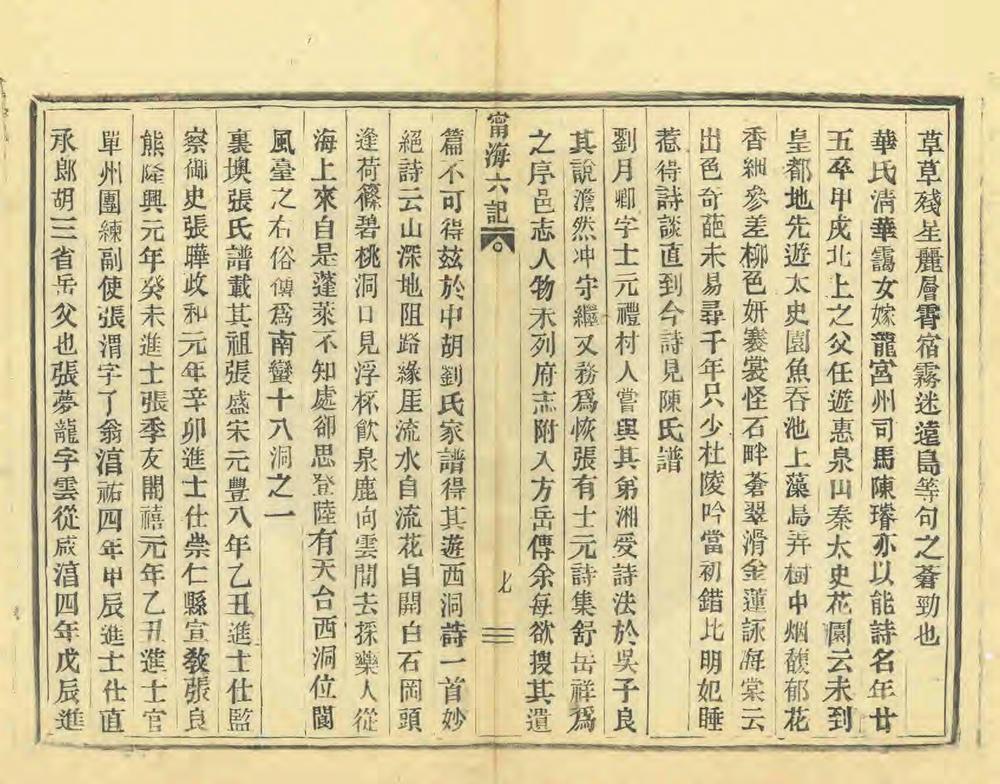 草草殘星麗層霄宿霧迷遠島等句之蒼勁也
華氏清華靄女嫁龍宮州司馬陳瓊亦以能詩名年廿
五卒甲戌北上之父任遊惠泉山秦太史花園云未到
皇都地先遊太史園魚吞池上藻鳥弄樹中烟馥郁花
香細參差柳色妍褰裳怪石畔蒼翠滑金蓮詠海棠云
出色奇葩未易尋千年只少杜陵吟當初錯比明妃睡
惹得詩談直到今詩見陳氏譜
劉月卿字士元禮村人嘗與其弟湘受詩法於吳子良
其說澹然冲守繼又務為恢張有士元詩集舒岳祥為
之序邑志人物未列府志附入方岳傳余每欲搜其遺
甯海六記
篇不可得玆於中胡劉氏家譜得其遊西洞詩一首妙
絕詩云山深地阻路緣厓流水自流花自開白石岡頭
逢荷篠碧桃洞口見浮杯飲泉鹿向雲間去採藥人從
海上來自是蓬萊不知處卻思登陸有天台西洞位閬
風臺之右俗傳為南蠻十八洞之一
裏墺張氏譜載其祖張盛宋元豐八年乙丑進士仕監
察御史張曄政和元年辛卯進士仕崇仁縣宣敎張良
熊隆興元年癸未進士張季友開禧元年乙丑進士官
單州團練副使張渭字了翁淯祐四年甲辰進士仕直
承郎胡三省岳父也張夢龍字雲從咸淯四年戊辰進